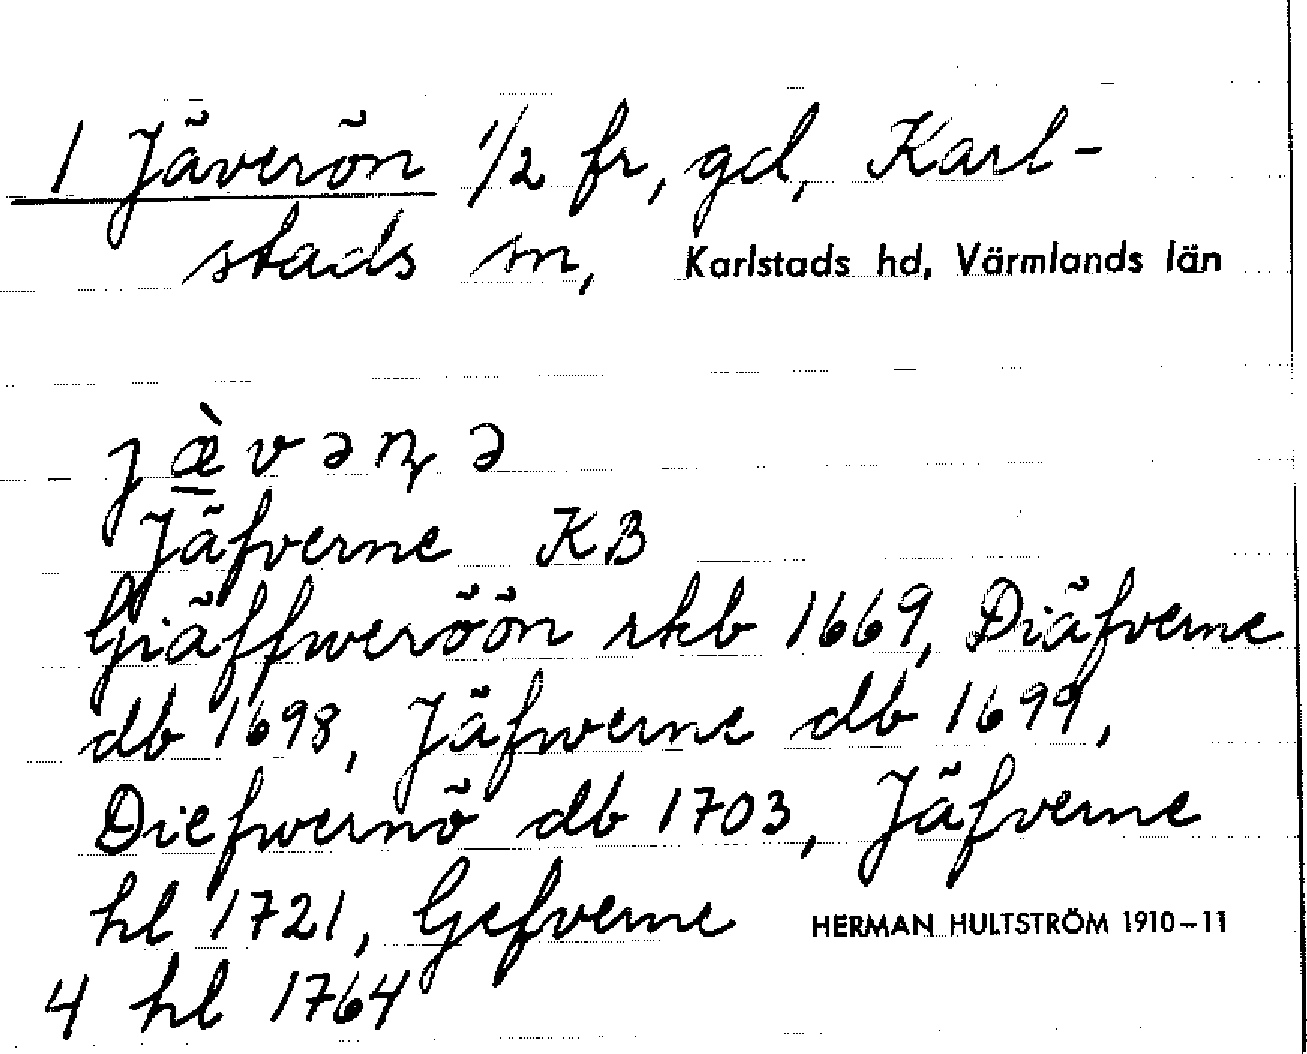 1 Jäverön 1/2 fr, gd, Karl-
stads sn, Karlstads hd, Värmlands län
jæ̀vəɳə
Jäfverne KB
Giäffweröön rkb 1669, Diäfverne
db 1698, Jäfwerne db 1699,
Diefwernö db 1703, Jäfverne
hl 1721, Gefverne HERMAN HULTSTRÖM 1910–11
4 hl 1764